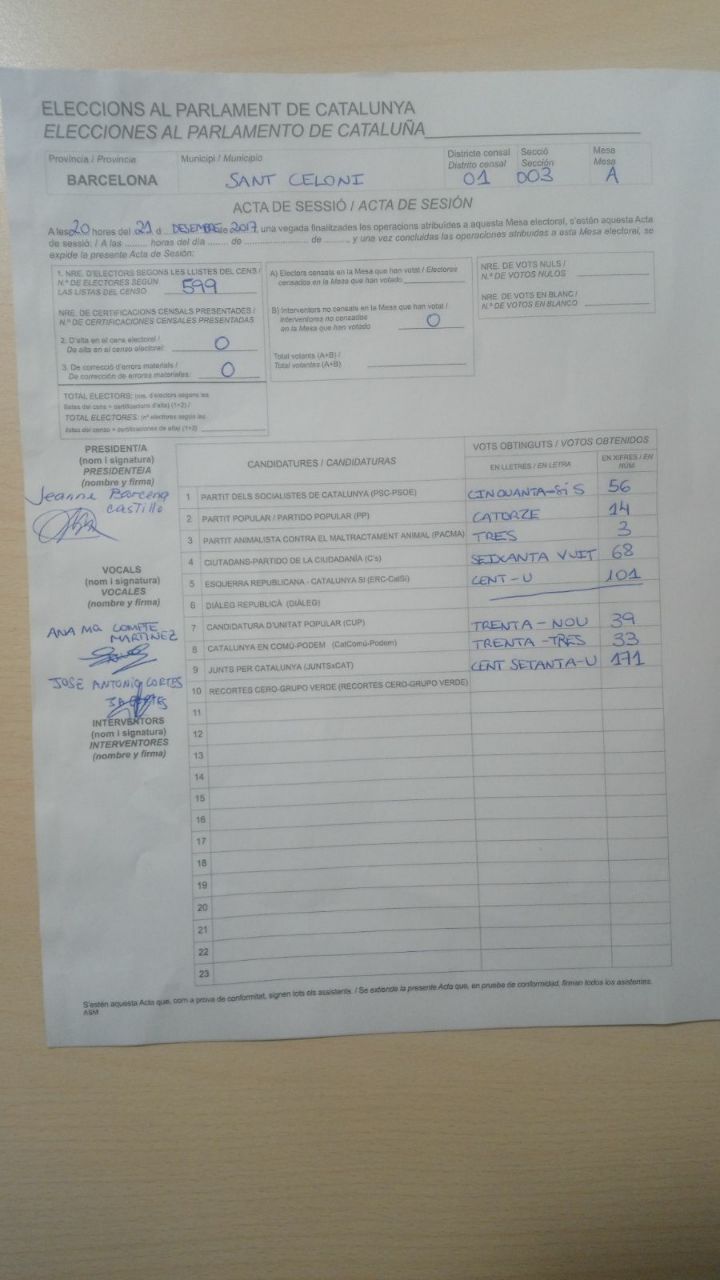 ELECCIONS AL PARLAMENT DE CATALUNYA
ELECCIONES AL PARLAMENTO DE CATALUÑA
Provincia / Provincia
BARCELONA
Municipi / Municipio
SANT CELONI
Districte censal
Distrito censal
01
Secció
Sección
003
Mesa
Mesa
A
ACTA DE SESSIÓ / ACTA DE SESIÓN
A les 20 hores del 21 d DESEMBRE de 2017, una vegada finalitzades les operacions atribuïdes a aquesta Mesa electoral, s'estén aquesta Acta
de sessió: / A las ........ horas del día ....... de ..................... de ........, y una vez concluidas las operaciones atribuidas a esta Mesa electoral, se
expide la presente Acta de Sesión:
1. NRE. D'ELECTORS SEGONS LES LLISTES DEL CENS /
N.º DE ELECTORES SEGÚN
LAS LISTAS DEL CENSO 599
NRE. DE CERTIFICACIONS CENSALS PRESENTADES /
N.º DE CERTIFICACIONES CENSALES PRESENTADAS
2. D'alta en el cens electoral /
De alta en el censo electoral: 0
3. De correcció d'errors materials /
De corrección de errores materiales: 0
TOTAL ELECTORS: (nre. d'electors segons les
llistes del cens + certificacions d'alta) (1+2) /
TOTAL ELECTORES: (nº electores según las
listas del censo + certificaciones de alta) (1+2)
A) Electors censats en la Mesa que han votat / Electores
censados en la Mesa que han votado
B) Interventors no censats en la Mesa que han votat /
Interventores no censados
en la Mesa que han votado 0
Total votants (A+B) /
Total votantes (A+B)
NRE. DE VOTS NULS /
N.º DE VOTOS NULOS
NRE. DE VOTS EN BLANC /
N.º DE VOTOS EN BLANCO
PRESIDENT/A
(nom i signatura)
PRESIDENTE/A
(nombre y firma)
Jeanne Barcena
Castillo
VOCALS
(nom i signatura)
VOCALES
(nombre y firma)
ANA Mª COMPTE
MARTINEZ
JOSE ANTONIO CORTES
INTERVENTORS
(nom i signatura)
INTERVENTORES
(nombre y firma)
CANDIDATURES / CANDIDATURAS
VOTS OBTINGUTS / VOTOS OBTENIDOS
EN LLETRES / EN LETRA
EN XIFRES / EN NÚM.
1 PARTIT DELS SOCIALISTES DE CATALUNYA (PSC-PSOE) CINQUANTA-SiS 56
2 PARTIT POPULAR / PARTIDO POPULAR (PP) CATORZE 14
3 PARTIT ANIMALISTA CONTRA EL MALTRACTAMENT ANIMAL (PACMA) TRES 3
4 CIUTADANS-PARTIDO DE LA CIUDADANÍA (C's) SEIXANTA VUIT 68
5 ESQUERRA REPUBLICANA - CATALUNYA SÍ (ERC-CatSí) CENT-U 101
6 DIÀLEG REPUBLICÀ (DIÀLEG)
7 CANDIDATURA D'UNITAT POPULAR (CUP) TRENTA-NOU 39
8 CATALUNYA EN COMÚ-PODEM (CatComú-Podem) TRENTA-TRES 33
9 JUNTS PER CATALUNYA (JUNTSxCAT) CENT SETANTA-U 171
10 RECORTES CERO-GRUPO VERDE (RECORTES CERO-GRUPO VERDE)
11
12
13
14
15
16
17
18
19
20
21
22
23
S'estén aquesta Acta que, com a prova de conformitat, signen tots els assistents. / Se extiende la presente Acta que, en prueba de conformidad, firman todos los asistentes.
ASM